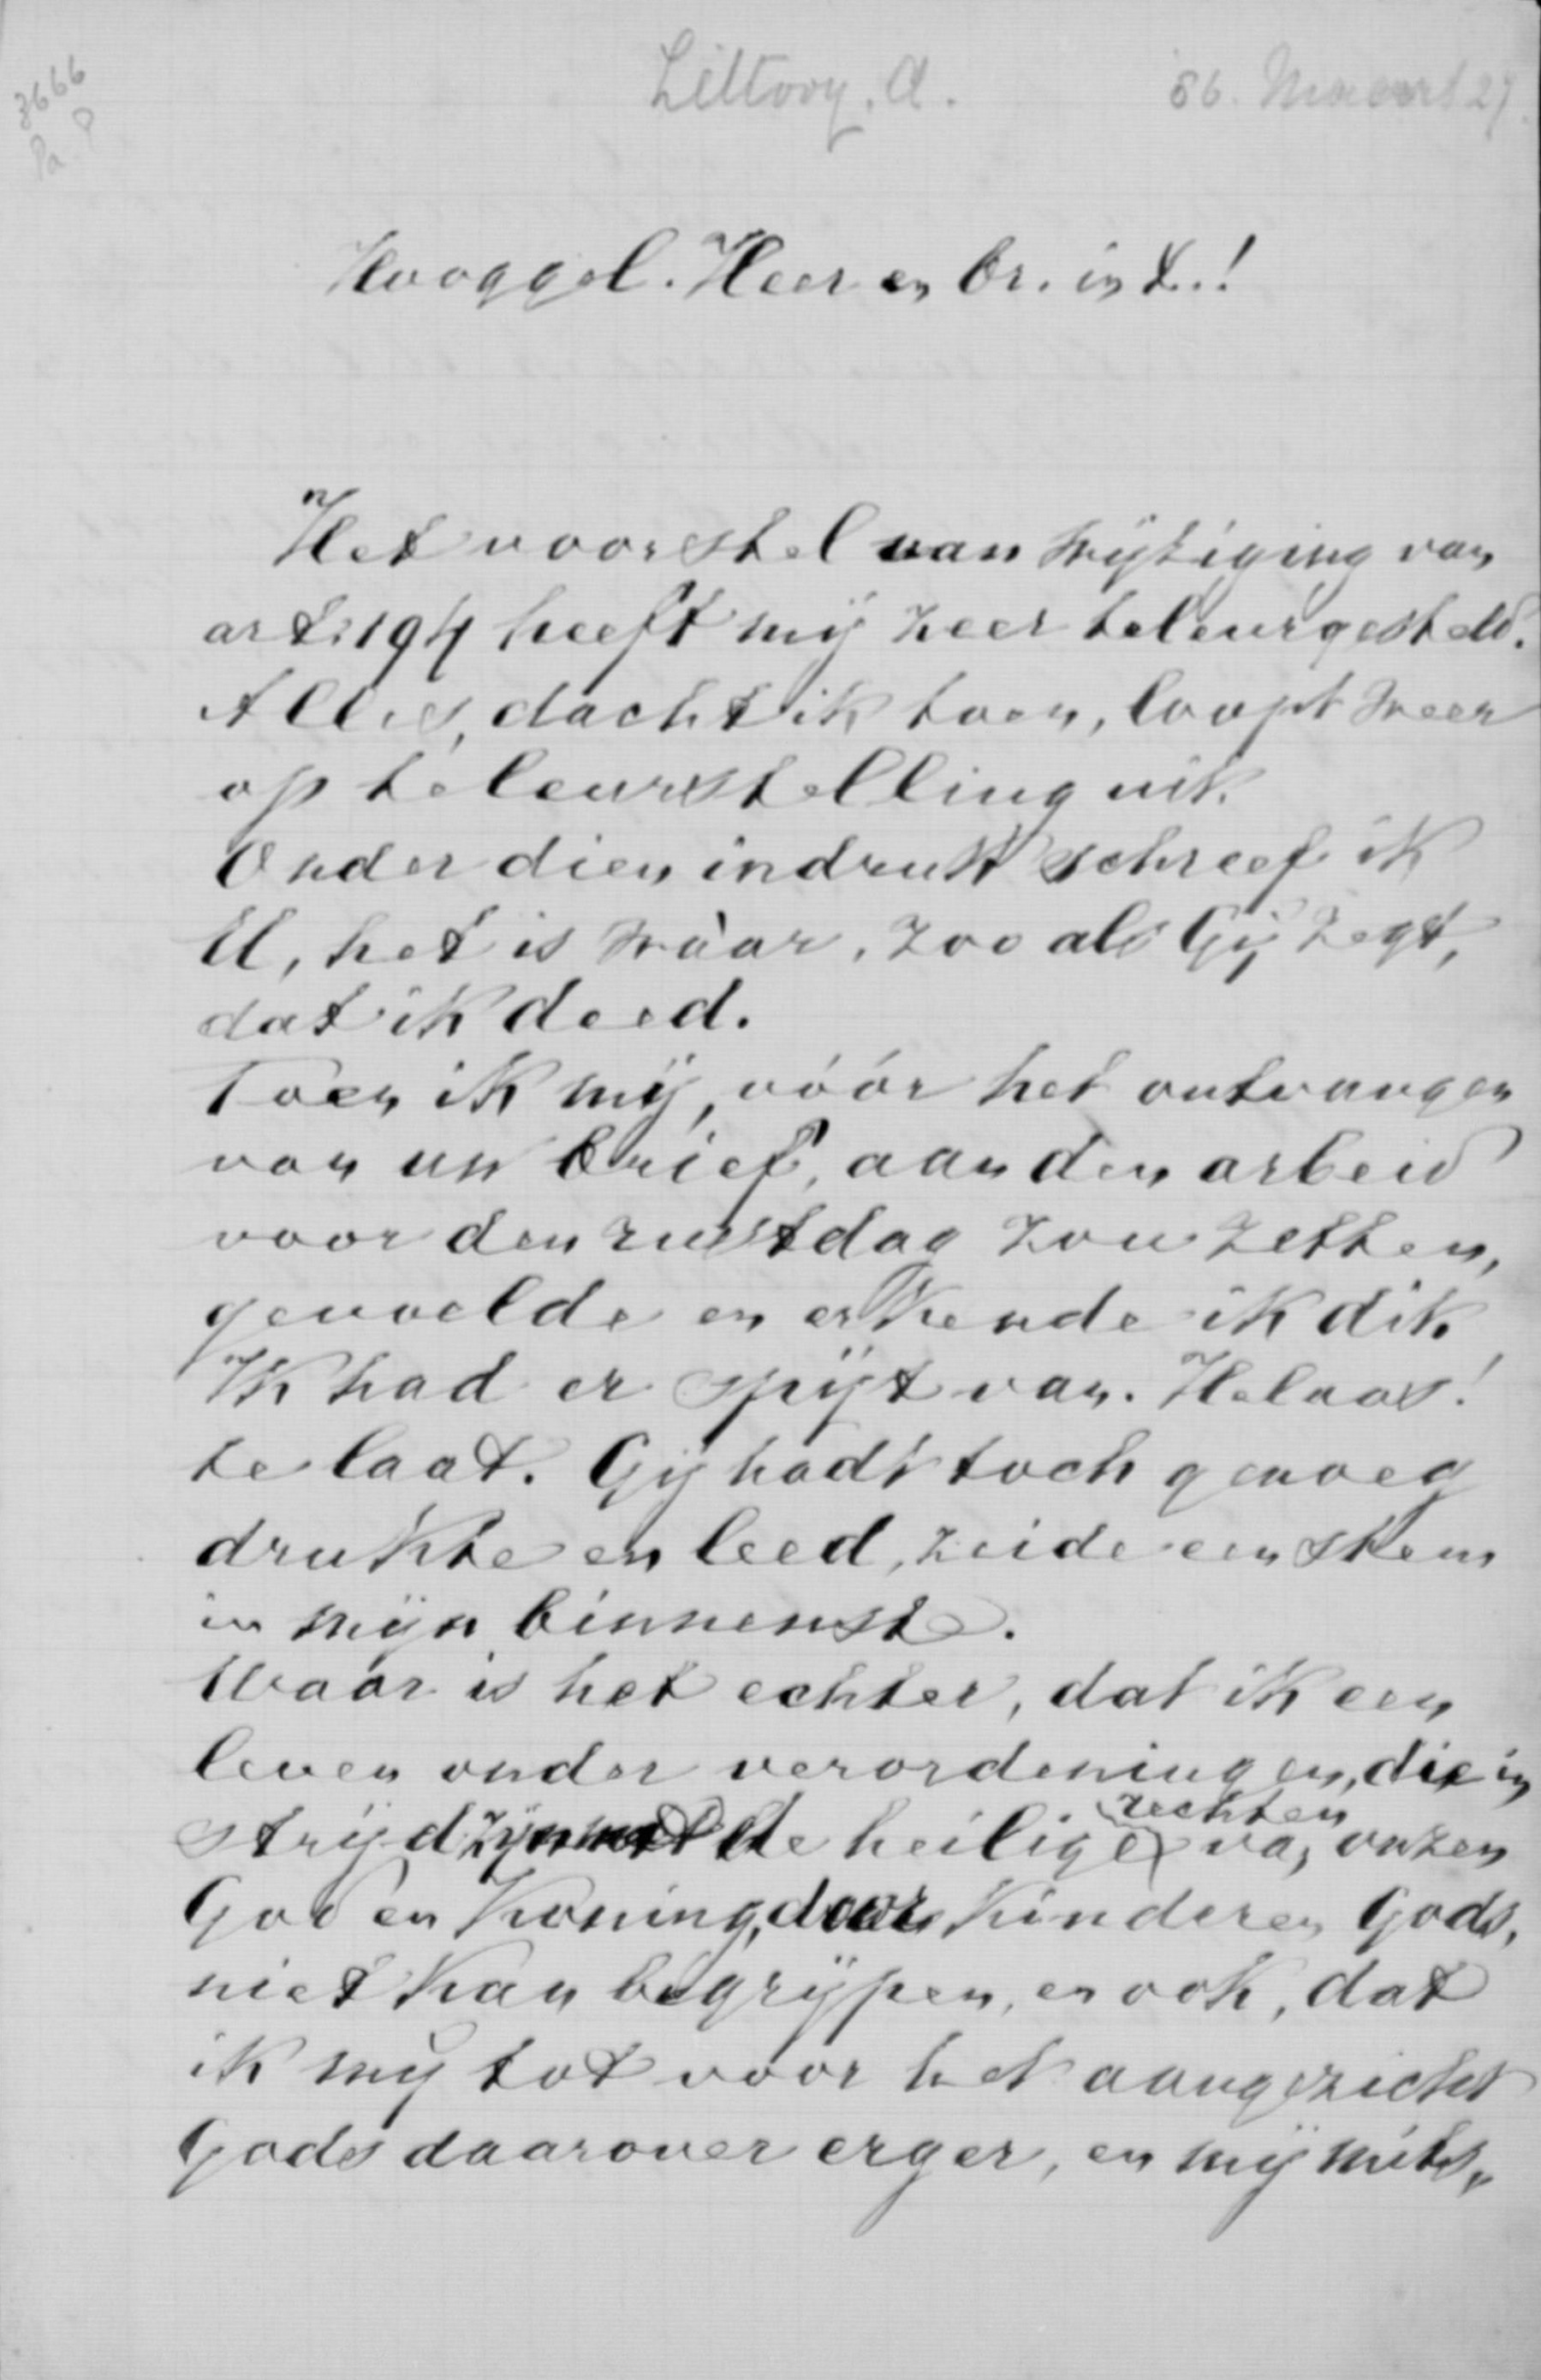 3666
Pa. P
Littooy. A.
86. Maart 27.
Hooggel. Heer en br. in X.!
Het voorstel van wijziging van
art. 194 heeft mij zeer teleurgesteld.
Alles, dacht ik toen, loopt weer
op teleurstelling uit.
Onder dien indruk schreef ik
U, het is wáár, zoo als Gij zegt,
dat ik deed.
Toen ik mij, vóór het ontvangen
van uw brief, aan den arbeid
voor den rustdag zou zetten,
gevoelde en erkende ik dit.
Ik had er spijt van. Helaas!
te laat. Gij hadt toch genoeg
drukte en leed, zeide een stem
in mijn binnenste.
Waar is het echter, dat ik een
leven onder verordeningen, die in
strijd zijn met de heilige rechten van onzen
God en Koning, door kinderen Gods,
niet kan begrijpen, en ook, dat
ik mij tot voor het aangezicht
Gods daarover erger, en mij mits„